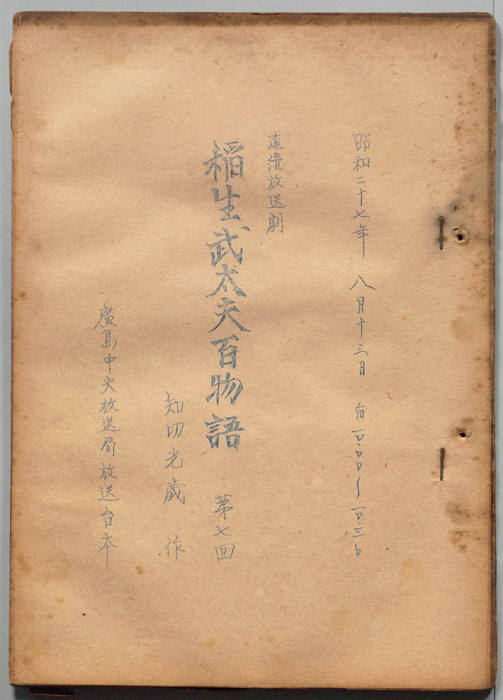 昭和二十七年 八月十三日 自
連続放送劇
稲生武太夫百物語 第七回
知切光歳 作
廣島中央放送局放送台本